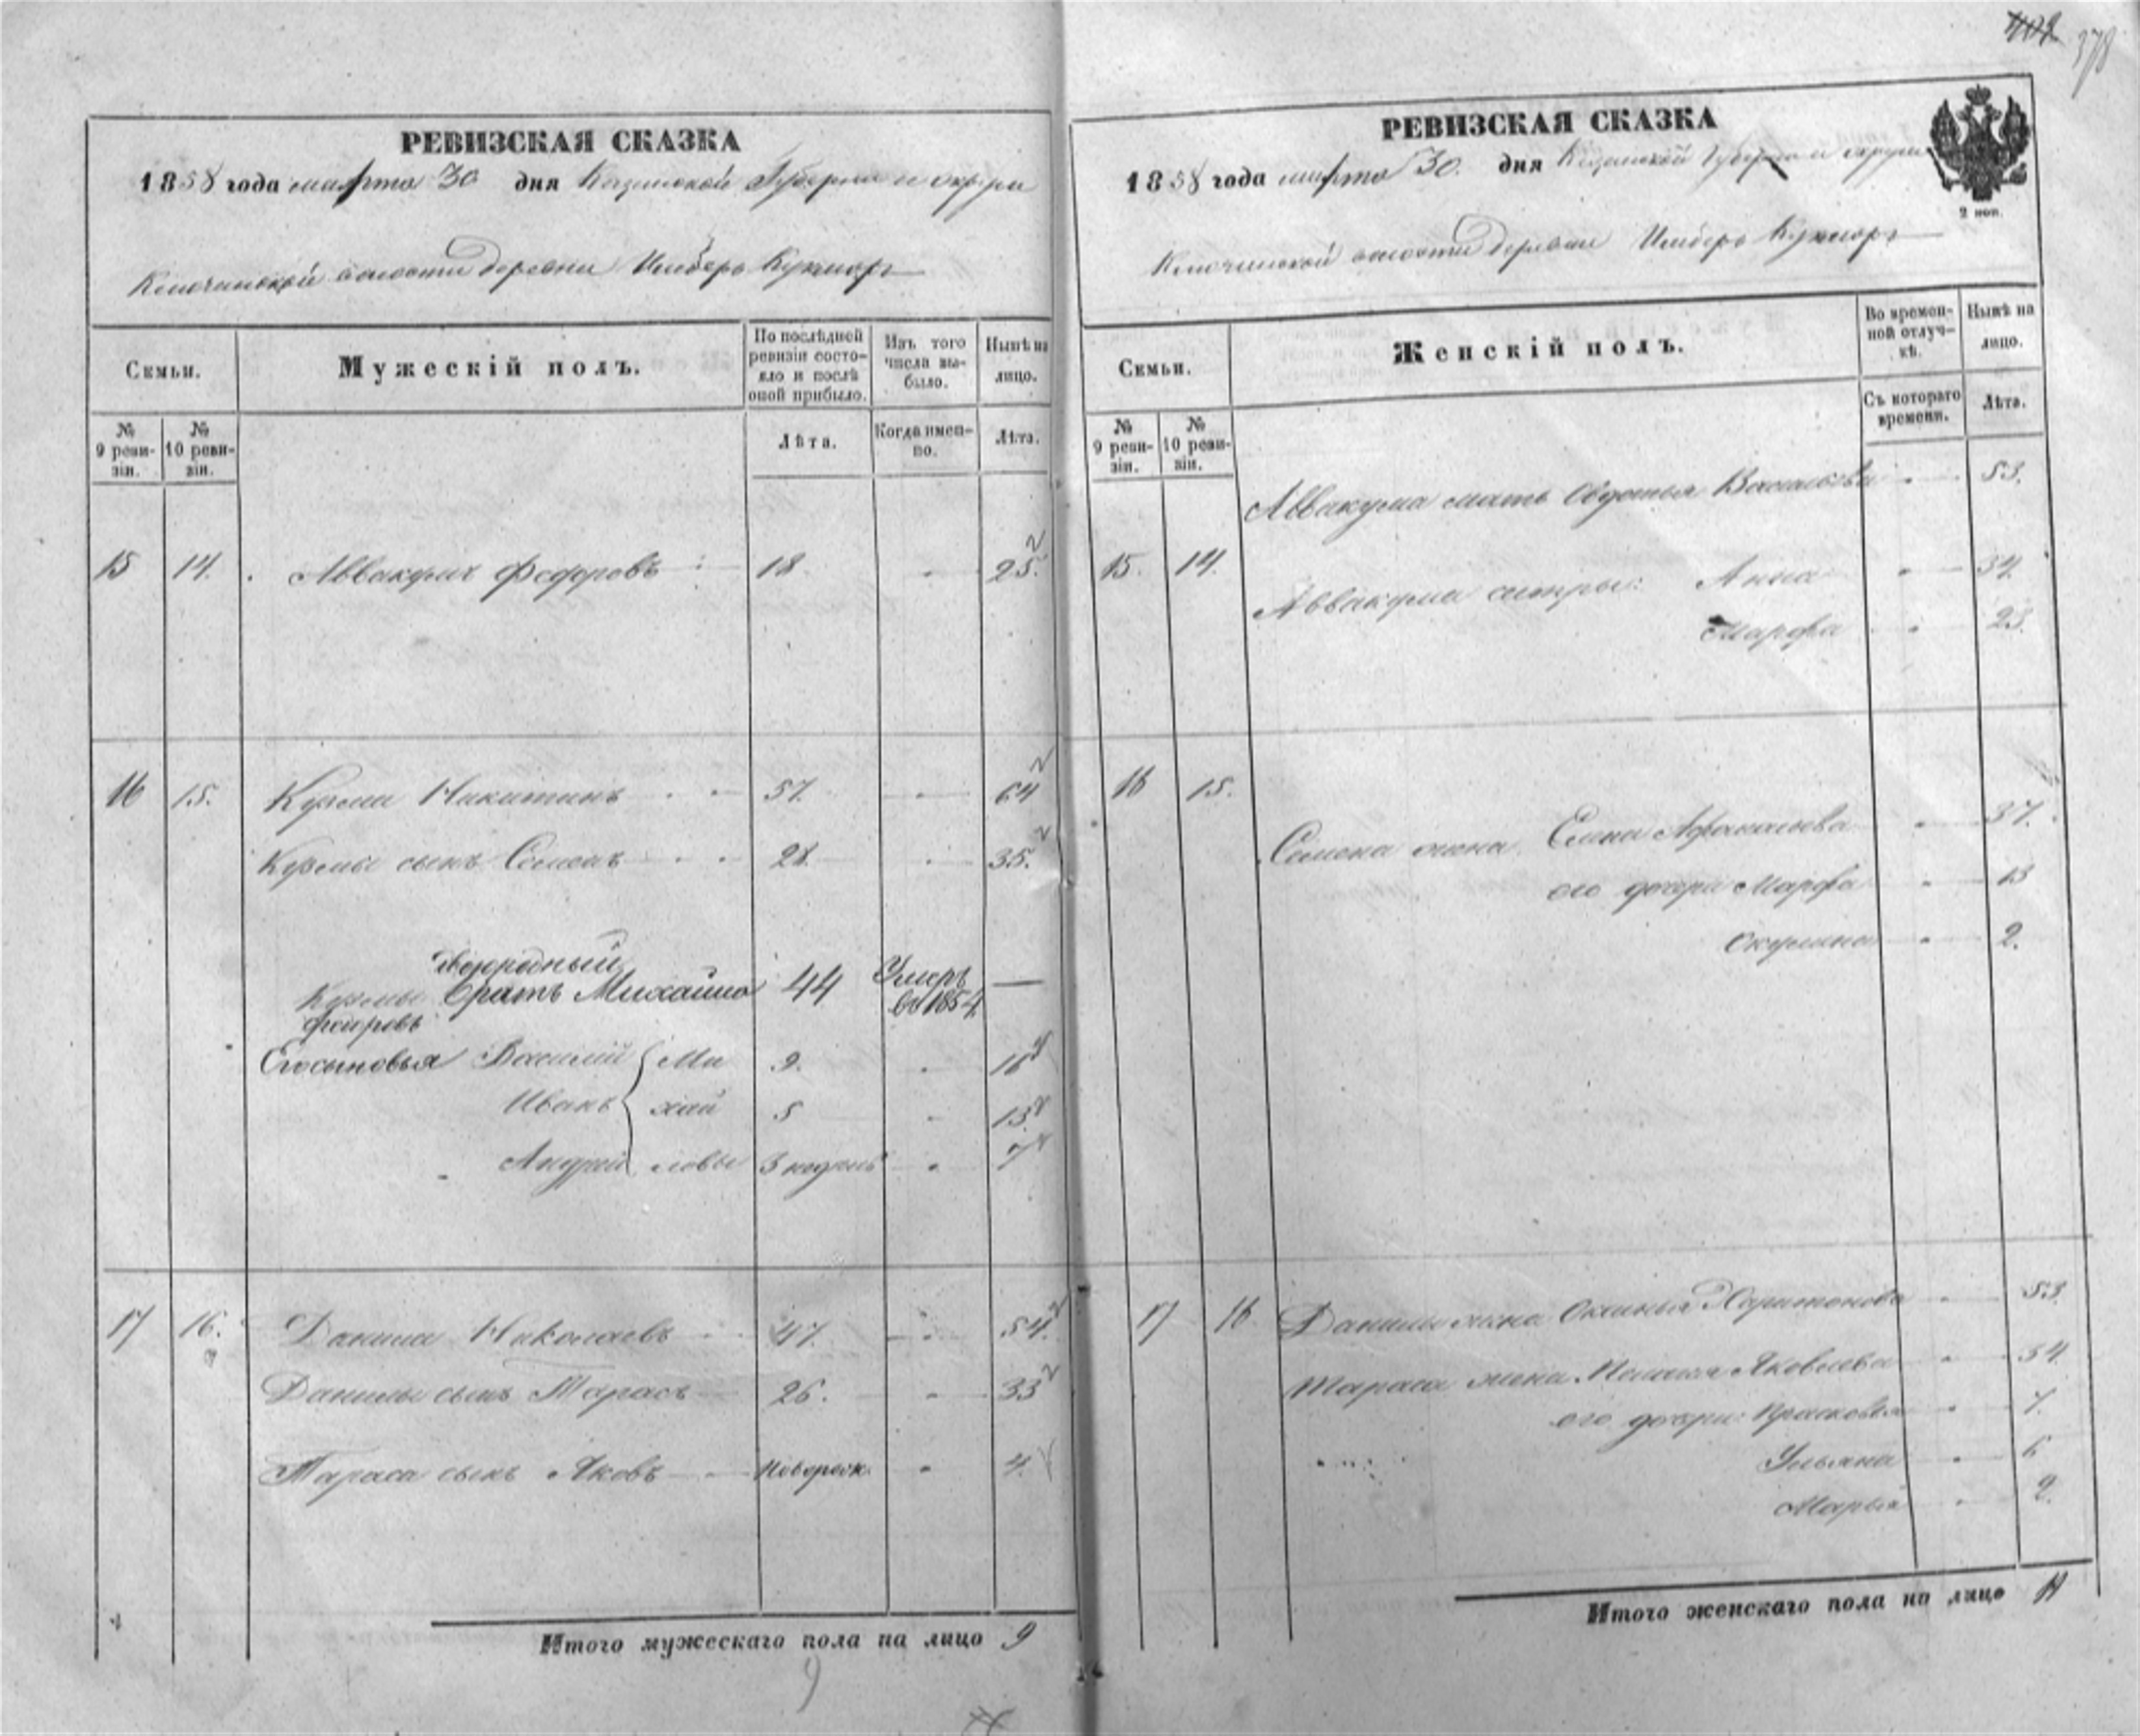 378
РЕВИЗСКАЯ СКАЗКА
1858 года марта 30 дня Казанской Губернии и округи
волости деревни Кукморъ
Семьи.
Мужескій полъ.
По послѣдней ревизіи состояло и послѣ оной прибыло.
Изъ того числа выбыло.
Нынѣ на лицо.
№ 9 ревизіи.
№ 10 ревизіи.
Лѣта.
Когда именно.
Лѣта.
15 14. Аввакумъ Федоровъ 18 25.
16 15. Кузма Никитинъ 57. 64
Кузмы сынъ Семенъ 28. 35.
двоюродный
Кузмы братъ Михаило 44 Умеръ въ 1854 —
Его сыновья Василий Ми 9. 16
Иванъ хай 5 13
Андрей ловы 3 недѣль 7
17 16. Данила Николаевъ 47. 54.
Данилы сынъ Тарасъ 26. 33
Тараса сынъ Яковъ Новорож. 4.
Итого мужескаго пола на лицо 9
9
РЕВИЗСКАЯ СКАЗКА
1858 года марта 30. дня Казанской Губернии и округи
2 коп.
волости деревни Кукморъ
Семьи.
Женскій полъ.
Во временной отлучкѣ.
Нынѣ на лицо.
№ 9 ревизіи.
№ 10 ревизіи.
Съ котораго времени.
Лѣта.
Аввакума мать Овдотья Васильева 53.
15. 14. Аввакума сестры: Анна 34.
Марфа 23.
16 15.
Семена жена Елена Афанасьева 37.
его дочери Марфа 13
Окулина 2.
17 16 Данилы жена Оксинья Харитонова 53.
Тараса жена Яковлева 34.
его дочери: Прасковья 7.
Ульяна 6
Марья 2.
Итого женскаго пола на лицо 11